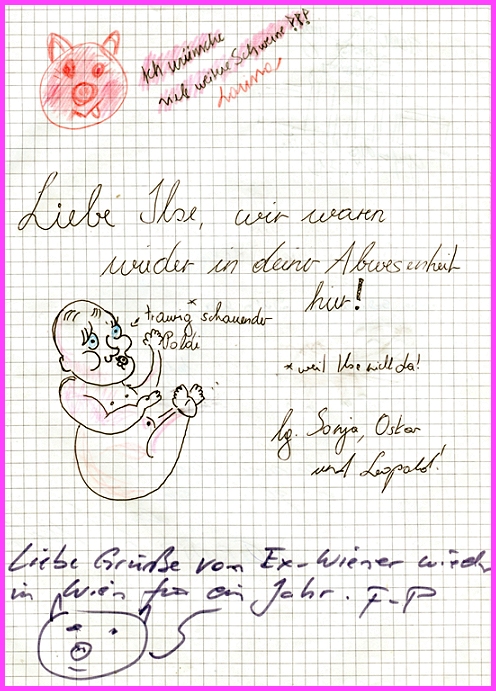 Ich wünsche
viele weitere Schweine!!!
Hanna
Liebe Ilse, wir waren
wieder in deiner Abwesenheit
hier!
← traurig* schauender
Poldi
*weil Ilse nicht da!
lg. Sonja, Oskar
und Leopold!
Liebe Grüße vom Ex-Wiener wieder
in Wien für ein Jahr. F-P